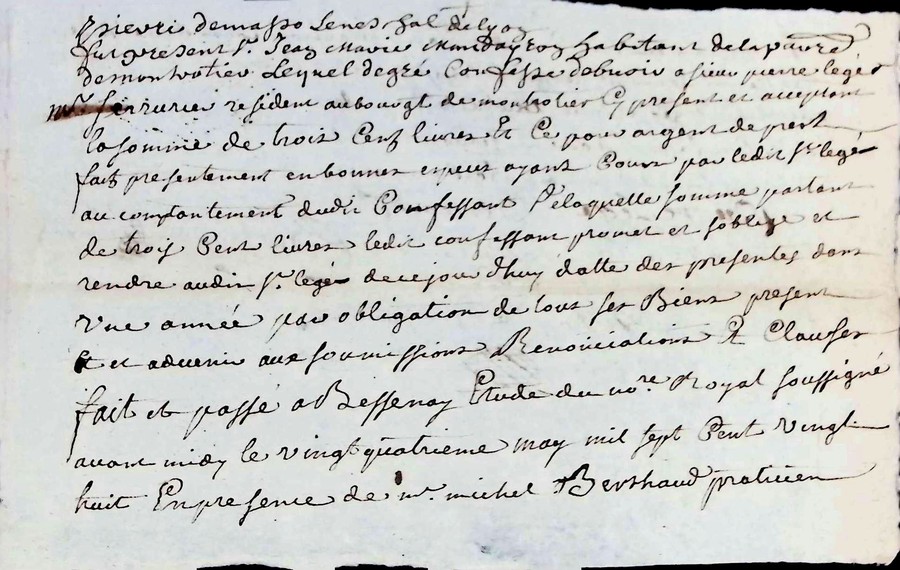 demasso Seneschal de lyon
fut present Sr. Jean marie habitant de la parre
de montrotier Lequel degré Confesse debvoir a sieur pierre legér
mr. serrurier resident au bourgt de montrotier Cy present et acceptant
la somme de trois Cent livres Et Ce pour argent de prest
fait presentement en bonnes especes ayant Cours par ledit Sr. legér
au contantement dudit Confessant laquelle somme partant
de trois Cent livres ledit confessant promet et soblige et
rendre audit Sr. legér de ce jourdhuy datte des presentes dans
vne année par obligation de tous ses Biens present
Et et advenir aux soumissions Renonciations Et Clauses
fait et passé a Bessenay Etude du nore. Royal soussigné
avant midy le vingt quatrieme may mil sept Cent vingt
huit En presence de mr. michel Berthaud praticien